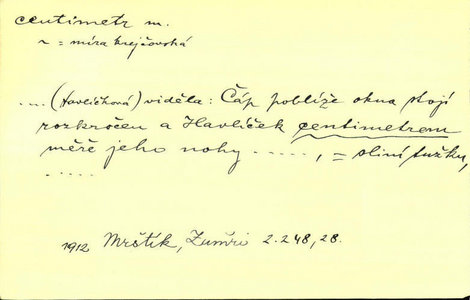 centimetr m.
~ = míra krejčovská
.... (Havlíčková) viděla: Čáp poblíže okna stojí
rozkročen a Havlíček centimetrem
měře jeho nohy ....., = sliní tužku,
.....
1912 Mrštík, Zumři 2.248,28.